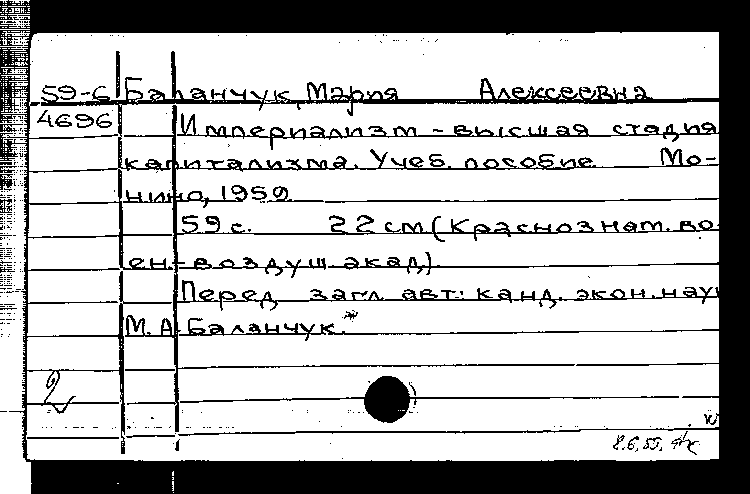 59-6 Баланчук, Мария Алексеевна
4696 Империализм - высшая стадия
капитализма. Учеб. пособие. Мо-
нино, 1959.
59 с. 22 см (Краснознам. во-
ен.-воздуш. акад.)
Перед загл. авт.: канд. экон. наук
М. А. Баланчук.*
2